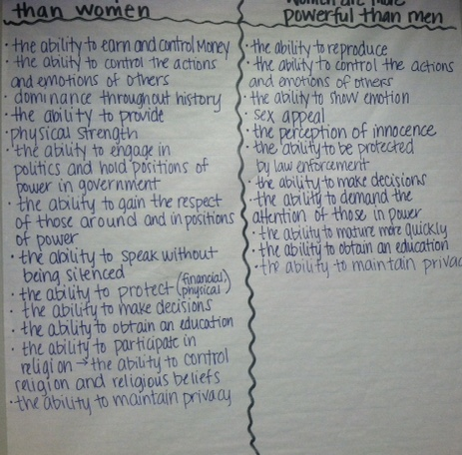 than women
· the ability to earn and control Money
· the ability to control the actions
and emotions of others
· dominance throughout history
· the ability to provide
· physical strength
· the ability to engage in
politics and hold positions of
power in government
· the ability to gain the respect
of those around and in positions
of power
· the ability to speak without
being silenced
· the ability to protect (financial, physical)
· the ability to make decisions
· the ability to obtain an education
· the ability to participate in
religion → the ability to control
religion and religious beliefs
· the ability to maintain privacy
Women are more
powerful than men
· the ability to reproduce
· the ability to control the actions
and emotions of others
· the ability to show emotion
· sex appeal
· the perception of innocence
· the ability to be protected
by law enforcement
· the ability to make decisions
· the ability to demand the
attention of those in power
· the ability to mature more quickly
· the ability to obtain an education
· the ability to maintain privac